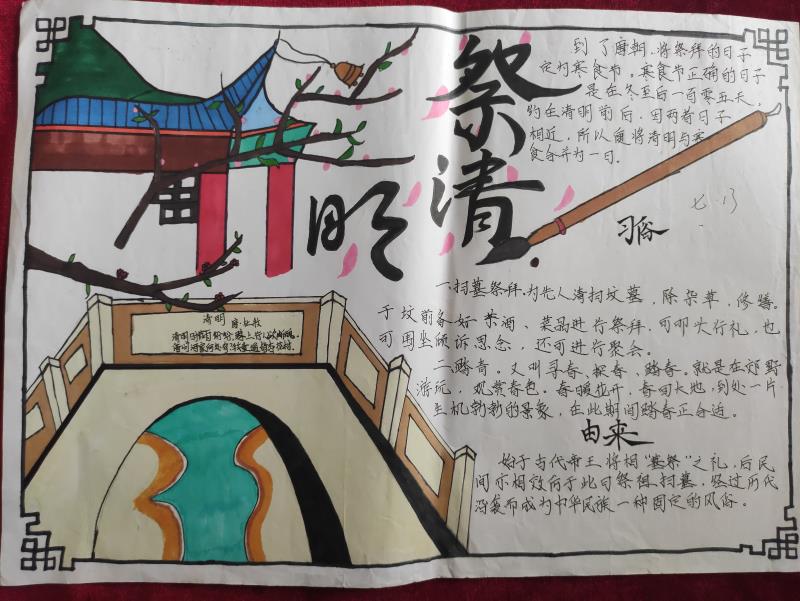 祭清
明
到了唐朝，将祭拜的日子
定为寒食节。寒食节正确的日子
是在冬至后一百零五天，
约在清明前后，因两者日子
相近，所以便将清明与寒
食合并为一日。
七.13
习俗
一.扫墓祭拜.为先人清扫坟墓，除杂草，修缮。
于坟前备好茶酒、菜品进行祭拜，可叩头行礼，也
可围坐倾诉思念，还可进行聚会。
二.踏青。又叫寻春、探春、踏春。就是在郊野
游玩，观赏春色。春暖花开，春回大地，到处一片
生机勃勃的景象，在此期间踏春正合适。
由来
始于古代帝王将相“墓祭”之礼，后民
间亦相效仿于此日祭祖、扫墓，经过历代
沿袭而成为中华民族一种固定的风俗。
清明 唐·杜牧
清明时节雨纷纷，路上行人欲断魂。